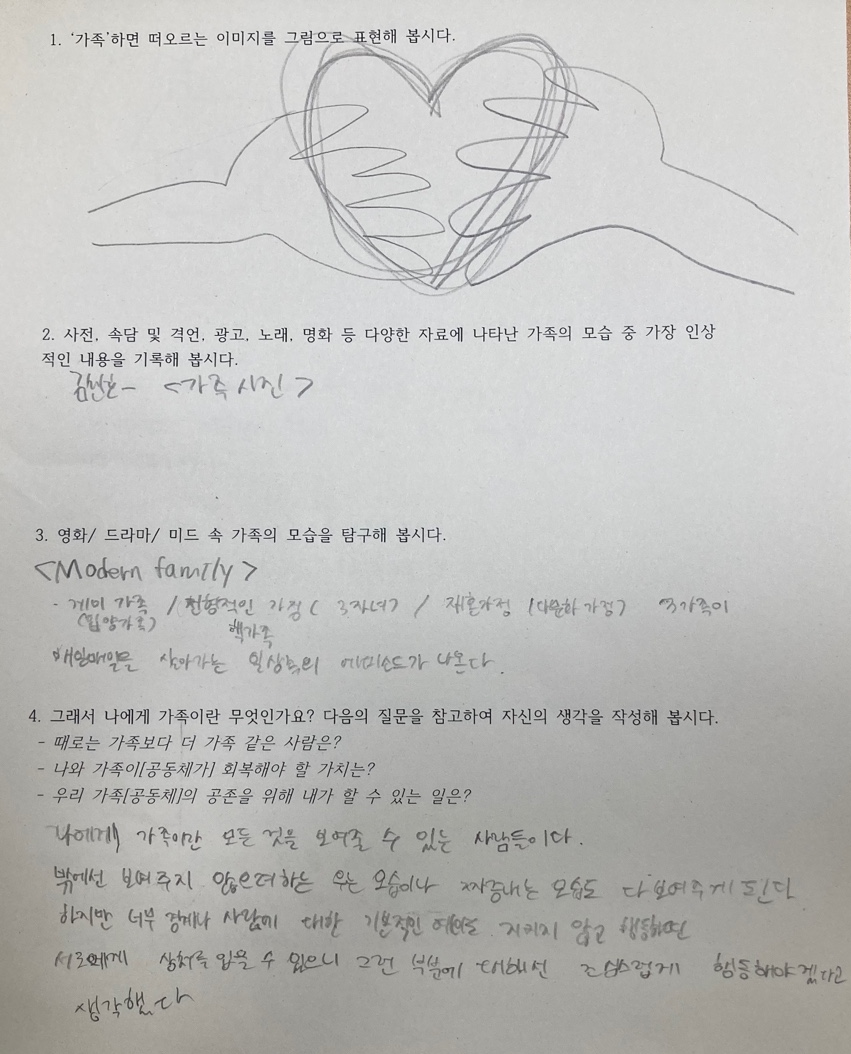 1. '가족'하면 떠오르는 이미지를 그림으로 표현해 봅시다.
2. 사전, 속담 및 격언, 광고, 노래, 명화 등 다양한 자료에 나타난 가족의 모습 중 가장 인상
적인 내용을 기록해 봅시다.
김진호 - <가족 사진>
3. 영화/ 드라마/ 미드 속 가족의 모습을 탐구해 봅시다.
<Modern family>
- 게이 가족 / 전형적인 가정 ( 3자녀) / 재혼가정 (다문화 가정) 3가족이
(입양가족) 핵가족
매일매일을 살아가는 일상속의 에피소드가 나온다.
4. 그래서 나에게 가족이란 무엇인가요? 다음의 질문을 참고하여 자신의 생각을 작성해 봅시다.
- 때로는 가족보다 더 가족 같은 사람은?
- 나와 가족이[공동체가] 회복해야 할 가치는?
- 우리 가족[공동체]의 공존을 위해 내가 할 수 있는 일은?
나에게 가족이란 모든 것을 보여줄 수 있는 사람들이다.
밖에선 보여주지 않으려하는 우는 모습이나 짜증내는 모습도 다 보여주게 된다
하지만 너무 경계나 사람에 대한 기본적인 예의를 지키지 않고 행동하면
서로에게 상처를 입을 수 있으니 그런 부분에 대해선 조심스럽게 행동해야겠다고
생각했다